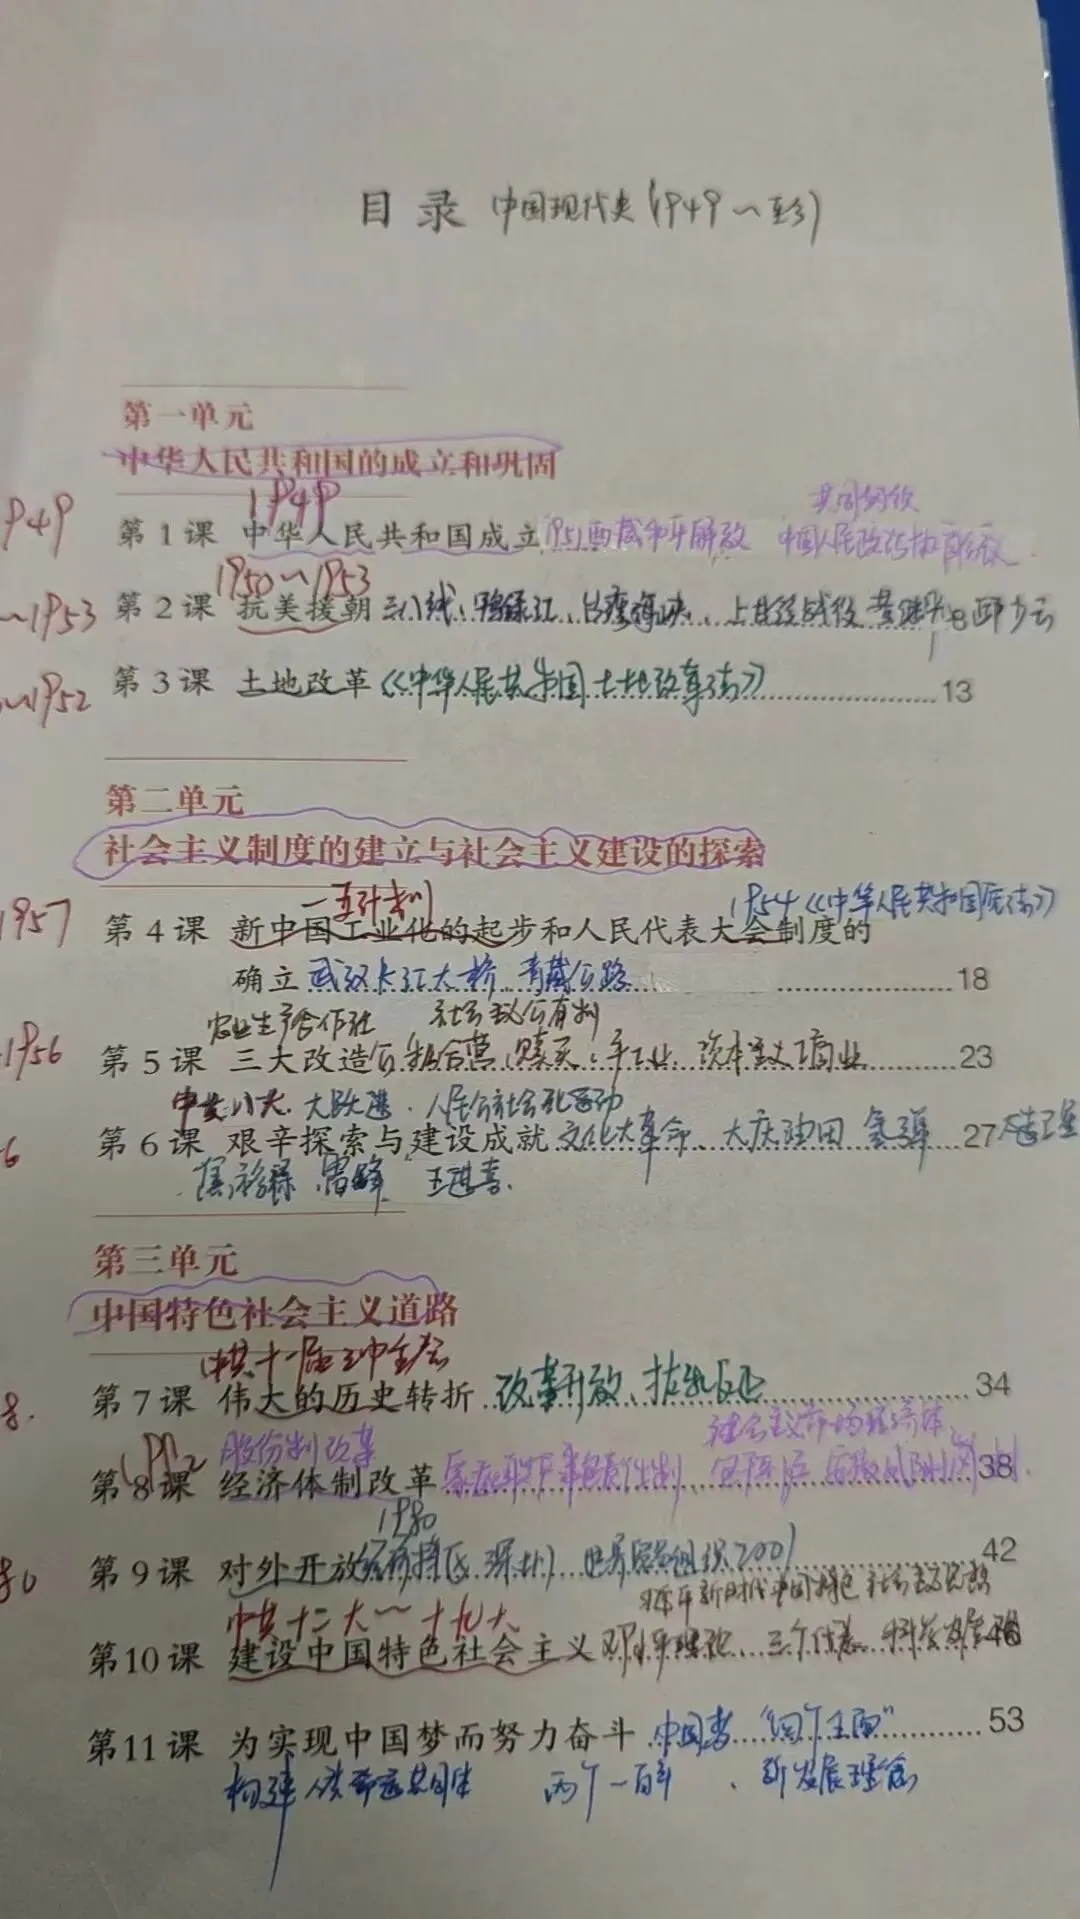 目录 中国现代史(1949~至今)
第一单元
中华人民共和国的成立和巩固
1949 1949 共同纲领
第1课 中华人民共和国成立 1951西藏和平解放 中国人民政治协商会议
1950~1953
~1953 第2课 抗美援朝 三八线、鸭绿江、台湾海峡、上甘岭战役 黄继光 8 邱少云
~1952 第3课 土地改革《中华人民共和国土地改革法》 13
第二单元
社会主义制度的建立与社会主义建设的探索
一五计划 1954《中华人民共和国宪法》
1957 第4课 新中国工业化的起步和人民代表大会制度的
确立 武汉长江大桥 青藏公路 18
农业生产合作社 社会主义公有制
1956 第5课 三大改造 公私合营 赎买 手工业 资本主义工商业 23
中共八大 大跃进 人民公社化运动
6 第6课 艰辛探索与建设成就 文化大革命、大庆油田 氢弹 27 人造卫星
焦裕禄 雷锋 王进喜
第三单元
中国特色社会主义道路
中共十一届三中全会
8. 第7课 伟大的历史转折 改革开放、拨乱反正 34
股份制改革 社会主义市场经济体
第8课 经济体制改革 家庭联产承包责任制 安徽凤阳小岗 38
1980
80 第9课 对外开放 经济特区 深圳 世界贸易组织2001 42
中共十二大~十九大 习近平新时代中国特色社会主义思想
第10课 建设中国特色社会主义 邓小平理论 三个代表 科学发展观 46
第11课 为实现中国梦而努力奋斗 中国梦 “四个全面” 53
构建人类命运共同体 两个一百年、新发展理念